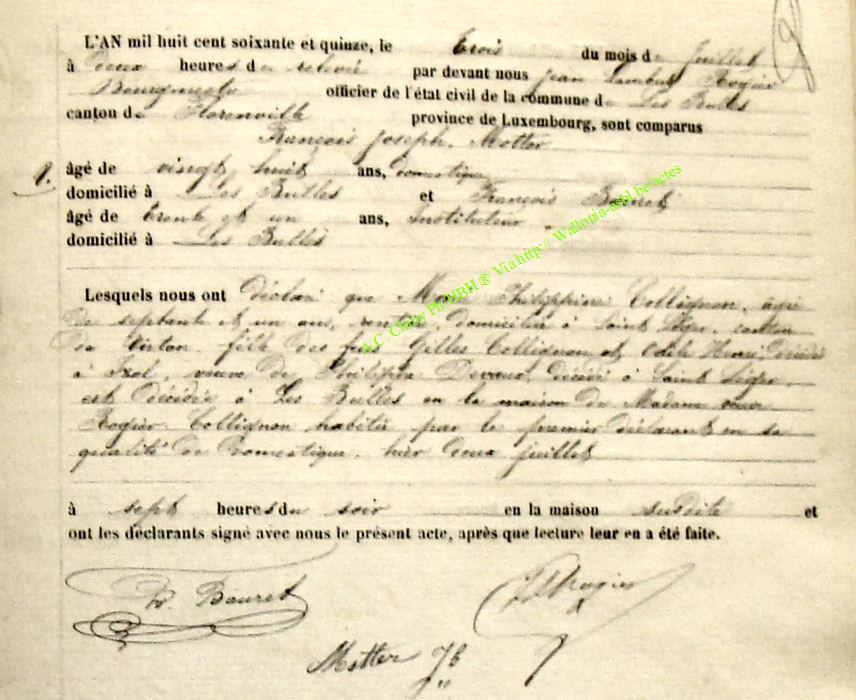 L'AN mil huit cent soixante et quinze, le Trois du mois de Juillet
à deux heures de relevée par devant nous Jean Lambert Rogier
Bourgmestre officier de l'état civil de la commune de Les Bulles
canton de Florenville province de Luxembourg, sont comparus
François Joseph Motter
9. âgé de vingt huit ans, domestique
domicilié à Les Bulles et François Bauret
âgé de trente et un ans, Instituteur
domicilié à Les Bulles
Lesquels nous ont déclaré que Marie Philippine Collignon, agée
de septante et un ans, rentière, domiciliée à Saint Léger, canton
de Virton, fille des feus Gilles Collignon et Odile Henri décédés
à Izel, veuve de Philippe Devaux, décédé à Saint Léger,
est décédée à Les Bulles en la maison de Madame veuve
Rogier-Collignon habitée par le premier déclarant en sa
qualité de domestique, hier deux juillet
à sept heures du soir en la maison susdite et
ont les déclarants signé avec nous le présent acte, après que lecture leur en a été faite.
F. Bauret JL Rogier
Motter JF
A.C. Chiny ® Via http:// Wallonia-asbl.be-actes